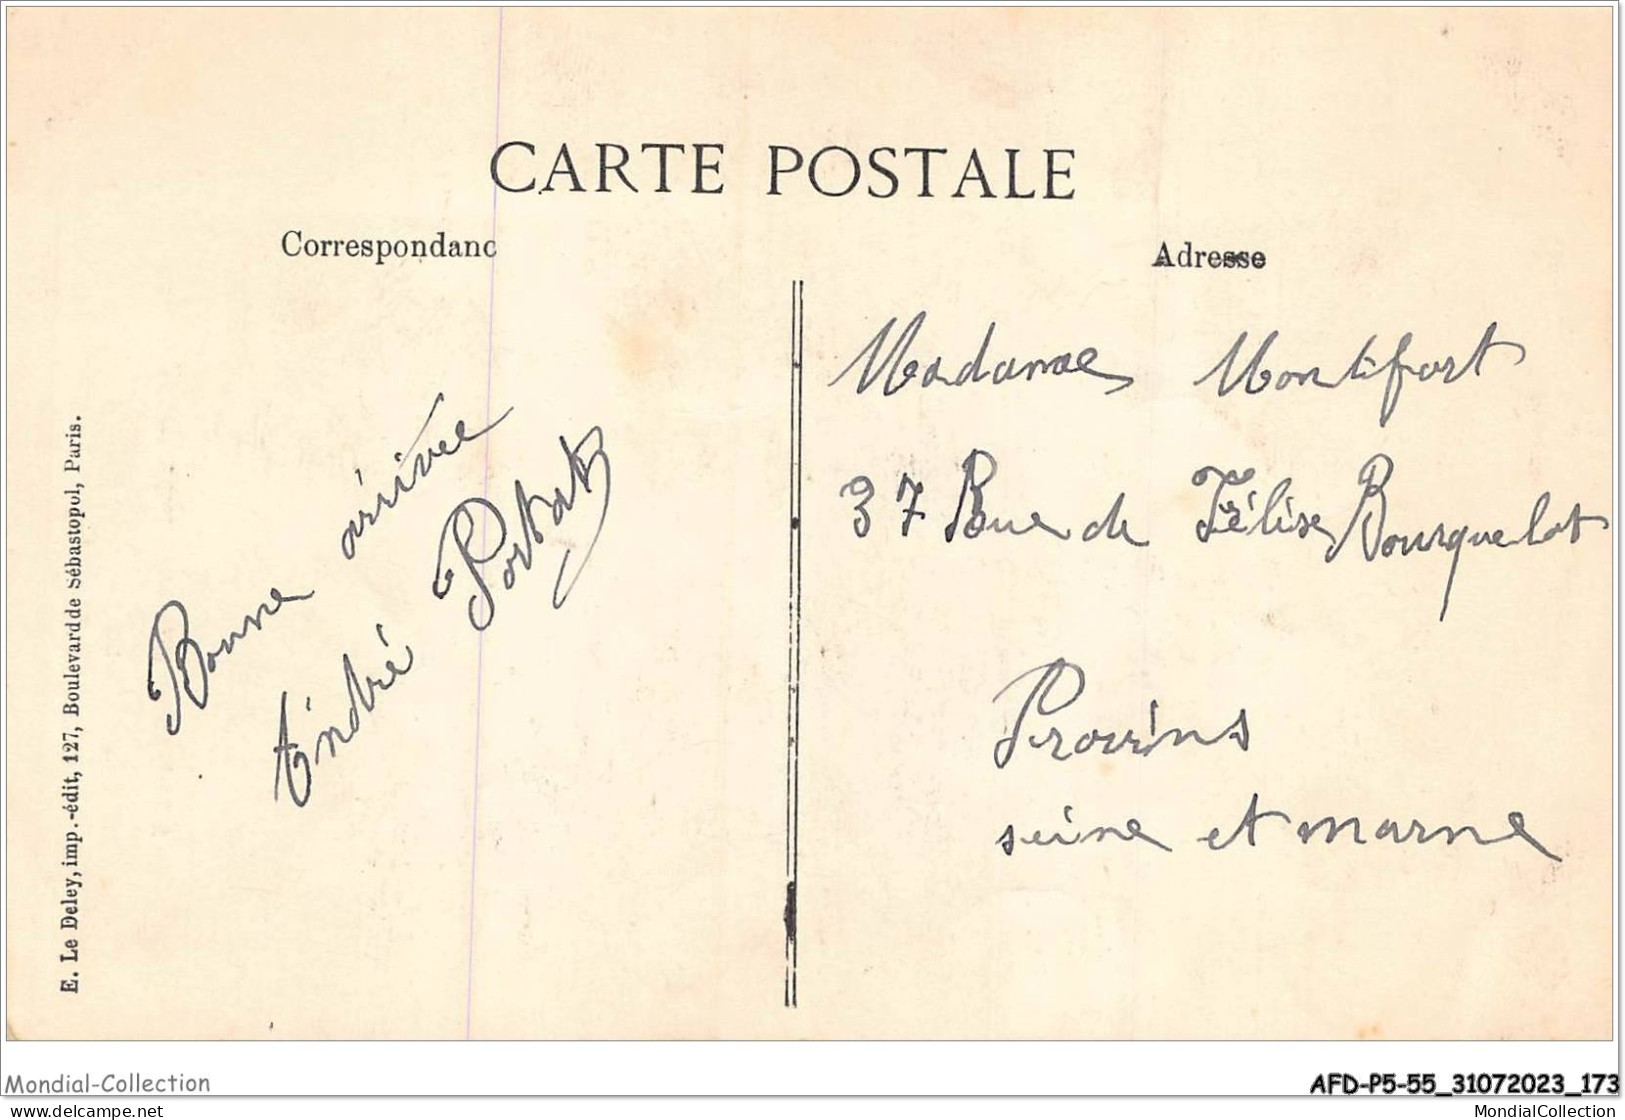 CARTE POSTALE
Correspondanc
Adresse
Bonne arrivée
André
Madame Montifort
37 Rue de Félise Bourquelot
Provins
seine et marne
E. Le Deley, imp.-édit, 127, Boulevard de Sébastopol, Paris.
Mondial-Collection
AFD-P5-55_31072023_173
www.delcampe.net
MondialCollection